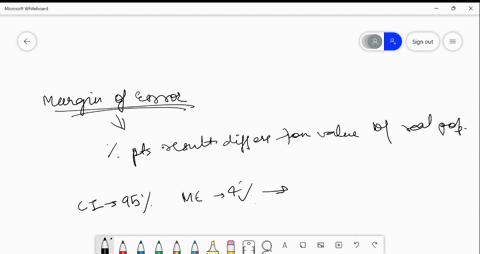 Microsoft Whiteboard
Sign out
Margin of Error
% pts results differ from value of real pop.
CI → 95% ME → 4% →
A